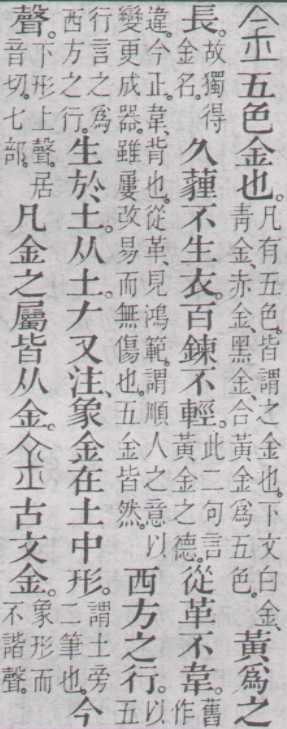 金五色金也。凡有五色。皆謂之金也。下文白金、青金、赤金、黑金、合黃金爲五色。黃爲之
長。故獨得金名。久薶不生衣。百鍊不輕。此二句言黃金之德。從革不韋。舊作
違。今正。韋、背也。從革、見鴻範。謂順人之意以變更成器。雖屢改易而無傷也。五金皆然。西方之行。以五
行言之爲西方之行。生於土。从土。𠂇又注、象金在土中形。謂土旁二筆也。今
聲。下形上聲。居音切。七部。凡金之屬皆从金。𨤾古文金。象形而不諧聲。